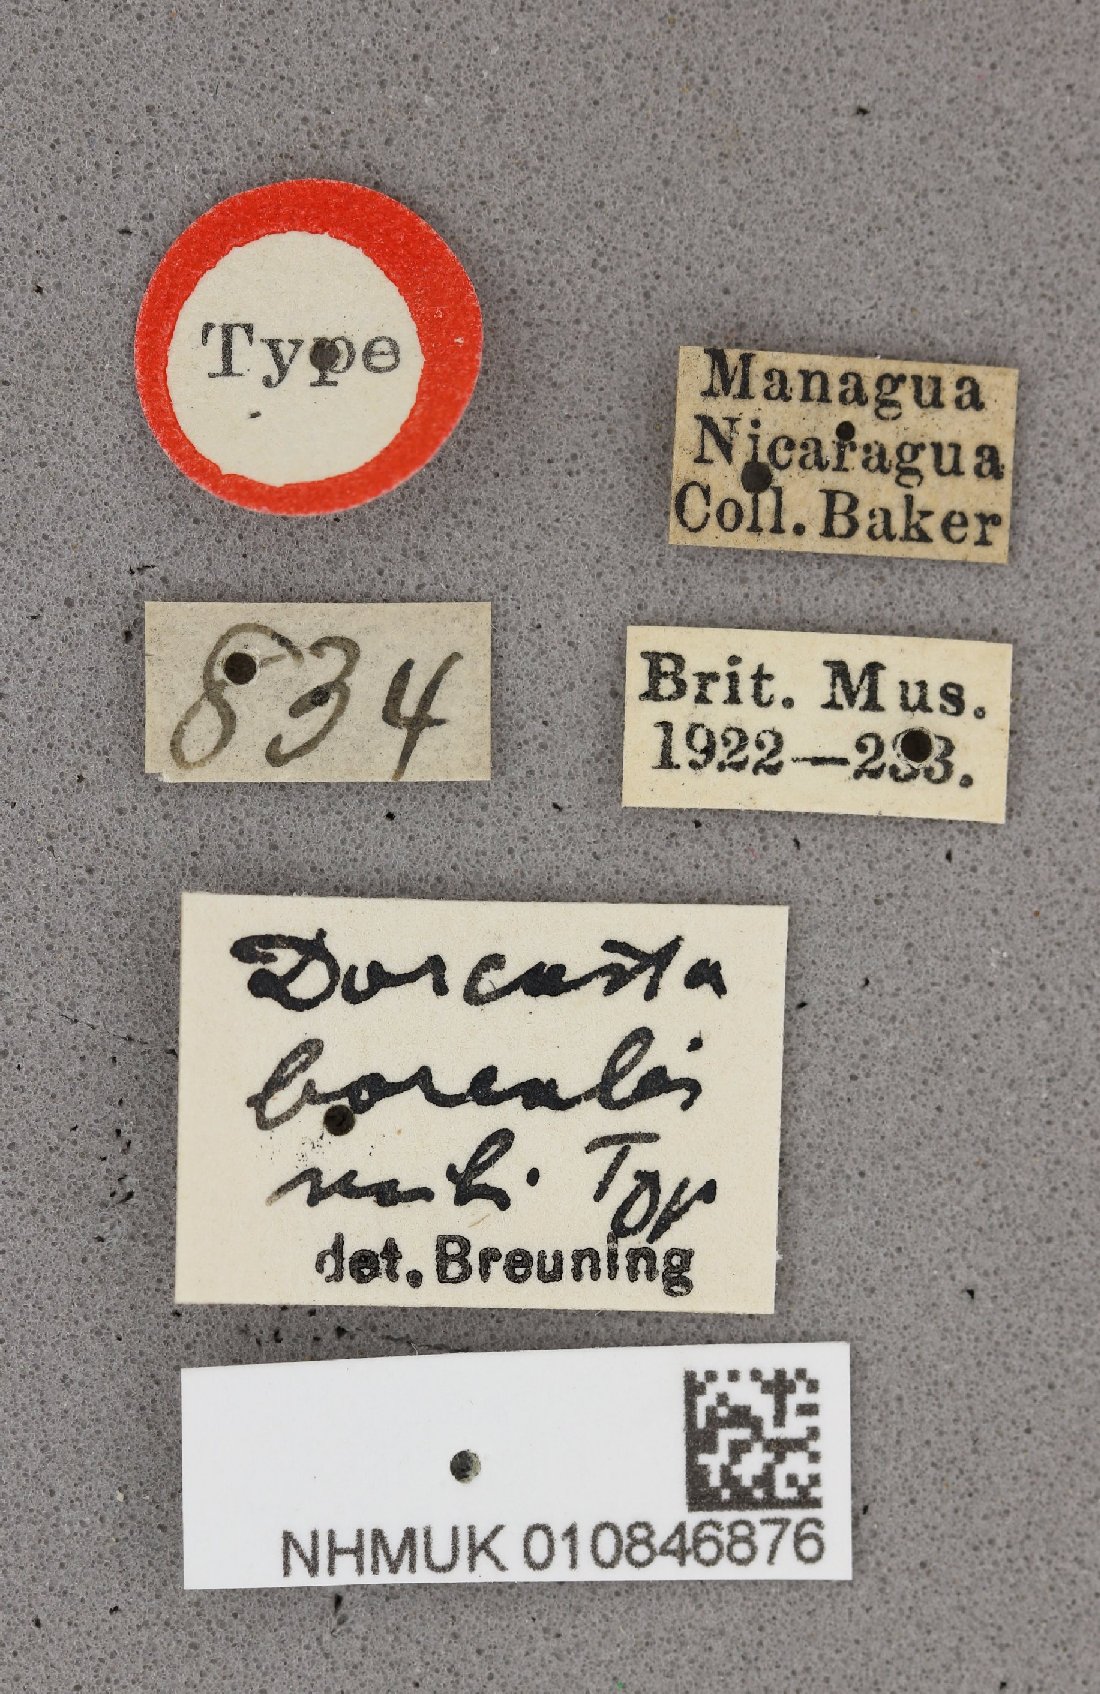 Type
Managua
Nicaragua
Coll. Baker
834
Brit. Mus.
1922—233.
Dorcasta
borealis
mihi Typ
det. Breuning
NHMUK 010846876